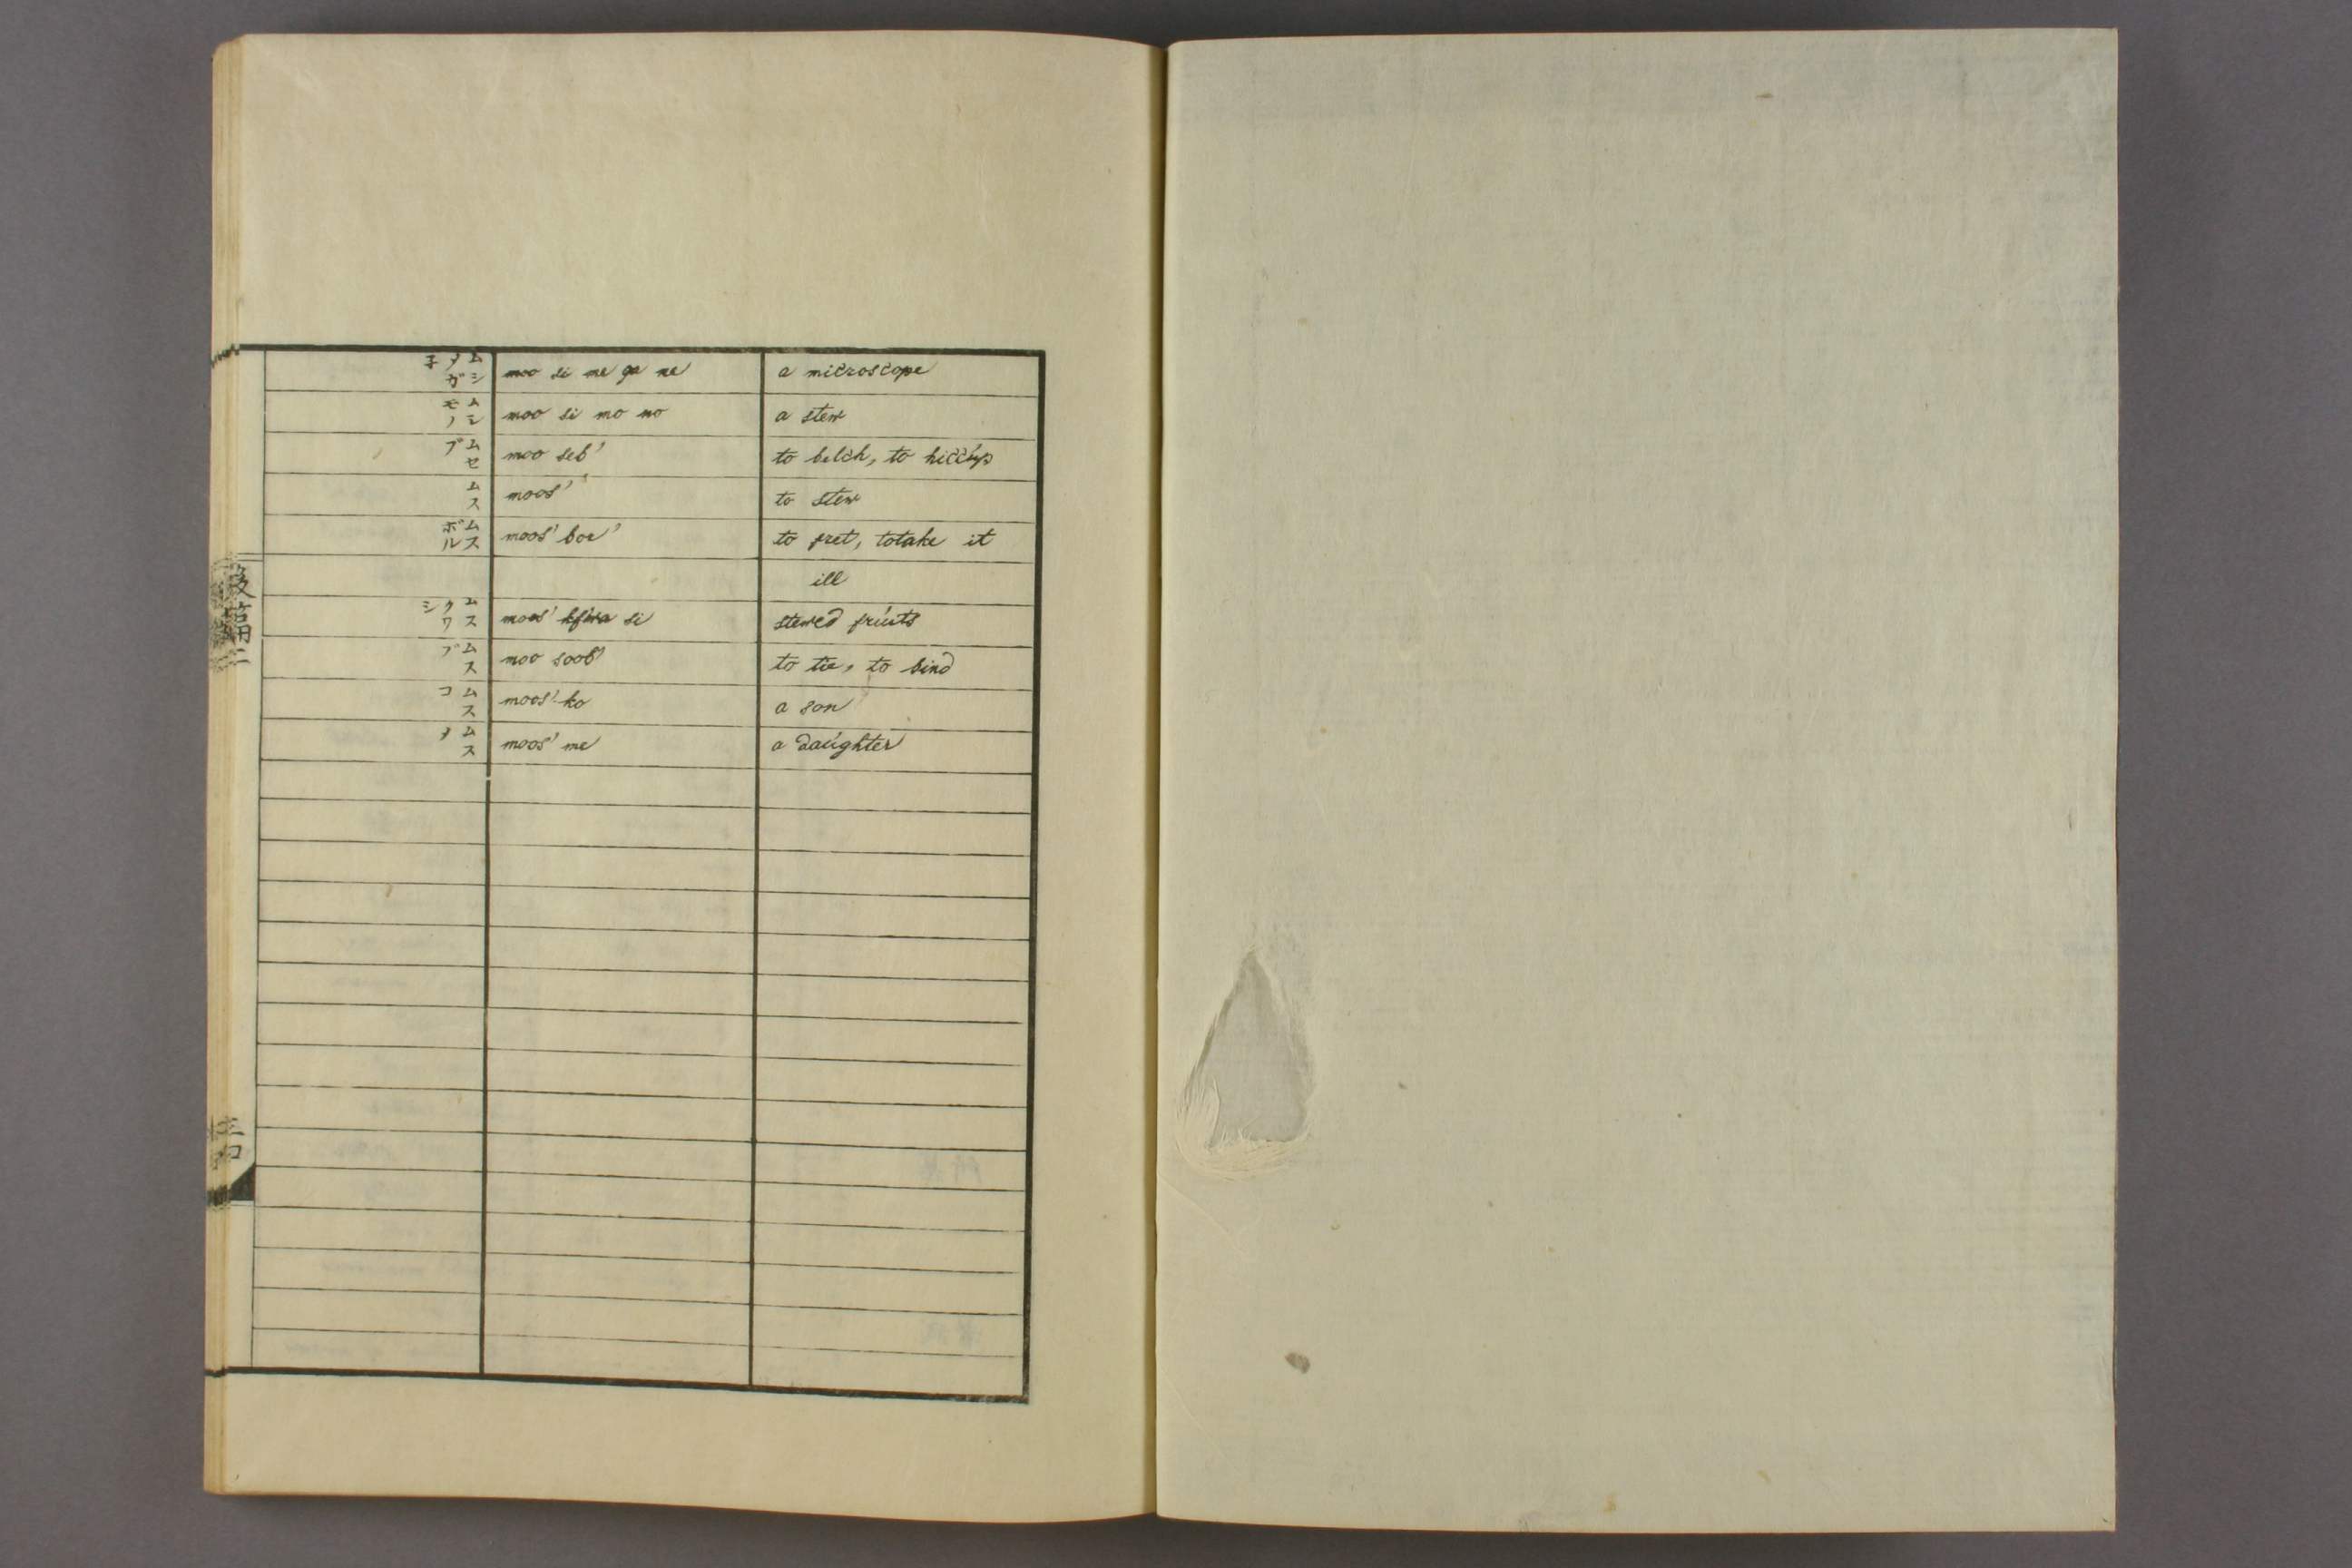 ムシメガ子 moo si me ga ne a microscope
ムシモノ moo si mo no a stew
ムセブ moo seb' to belch, to hiccup
ムス moos' to stew
ムスボル moos' boe' to fret, totake it
ill
ムスクワシ moos' kfwa si stewed fruits
ムスブ moo soob' to tie, to bind
ムスコ moos' ko a son
ムスメ moos' me a daughter
後篇二